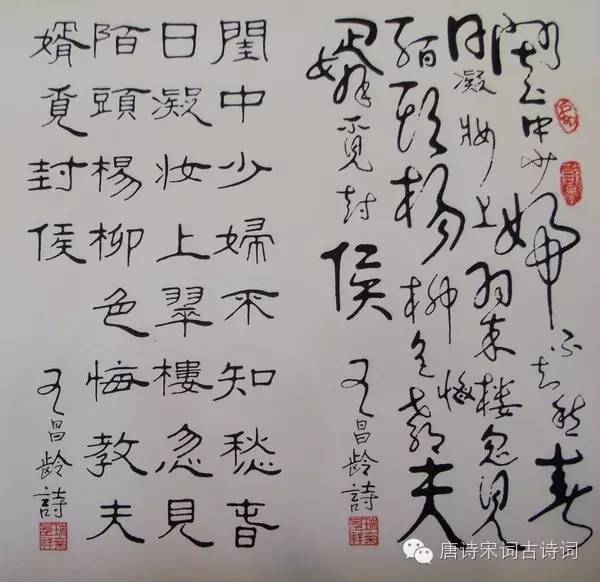 閨中少婦不知愁春
日凝妝上翠楼忽見
陌頭楊柳色悔教夫
婿覓封侯
王昌齡詩
閨中少婦不知愁春
日凝妝上翠樓忽見
陌頭楊柳色悔教夫
婿覓封侯
王昌齡詩
唐诗宋词古诗词